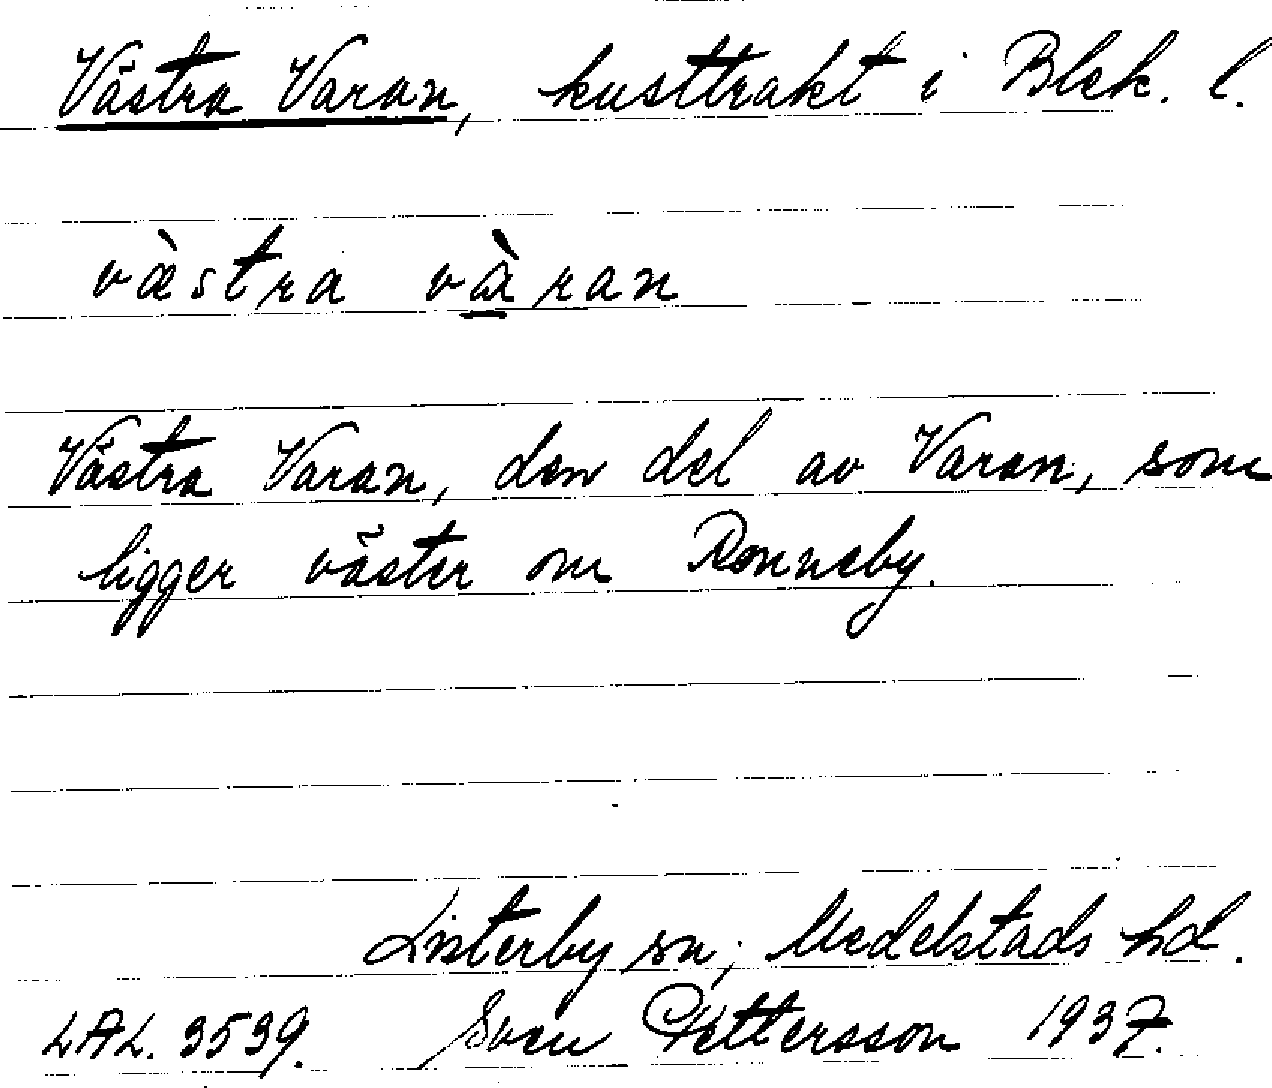 Västra Varan, kusttrakt i Blek. l.
væ̀stra vɑ̀ran
Västra Varan, den del av Varan, som
ligger väster om Ronneby.
Listerby sn, Medelstads hd.
LAL. 3539. Sven Pettersson 1937.